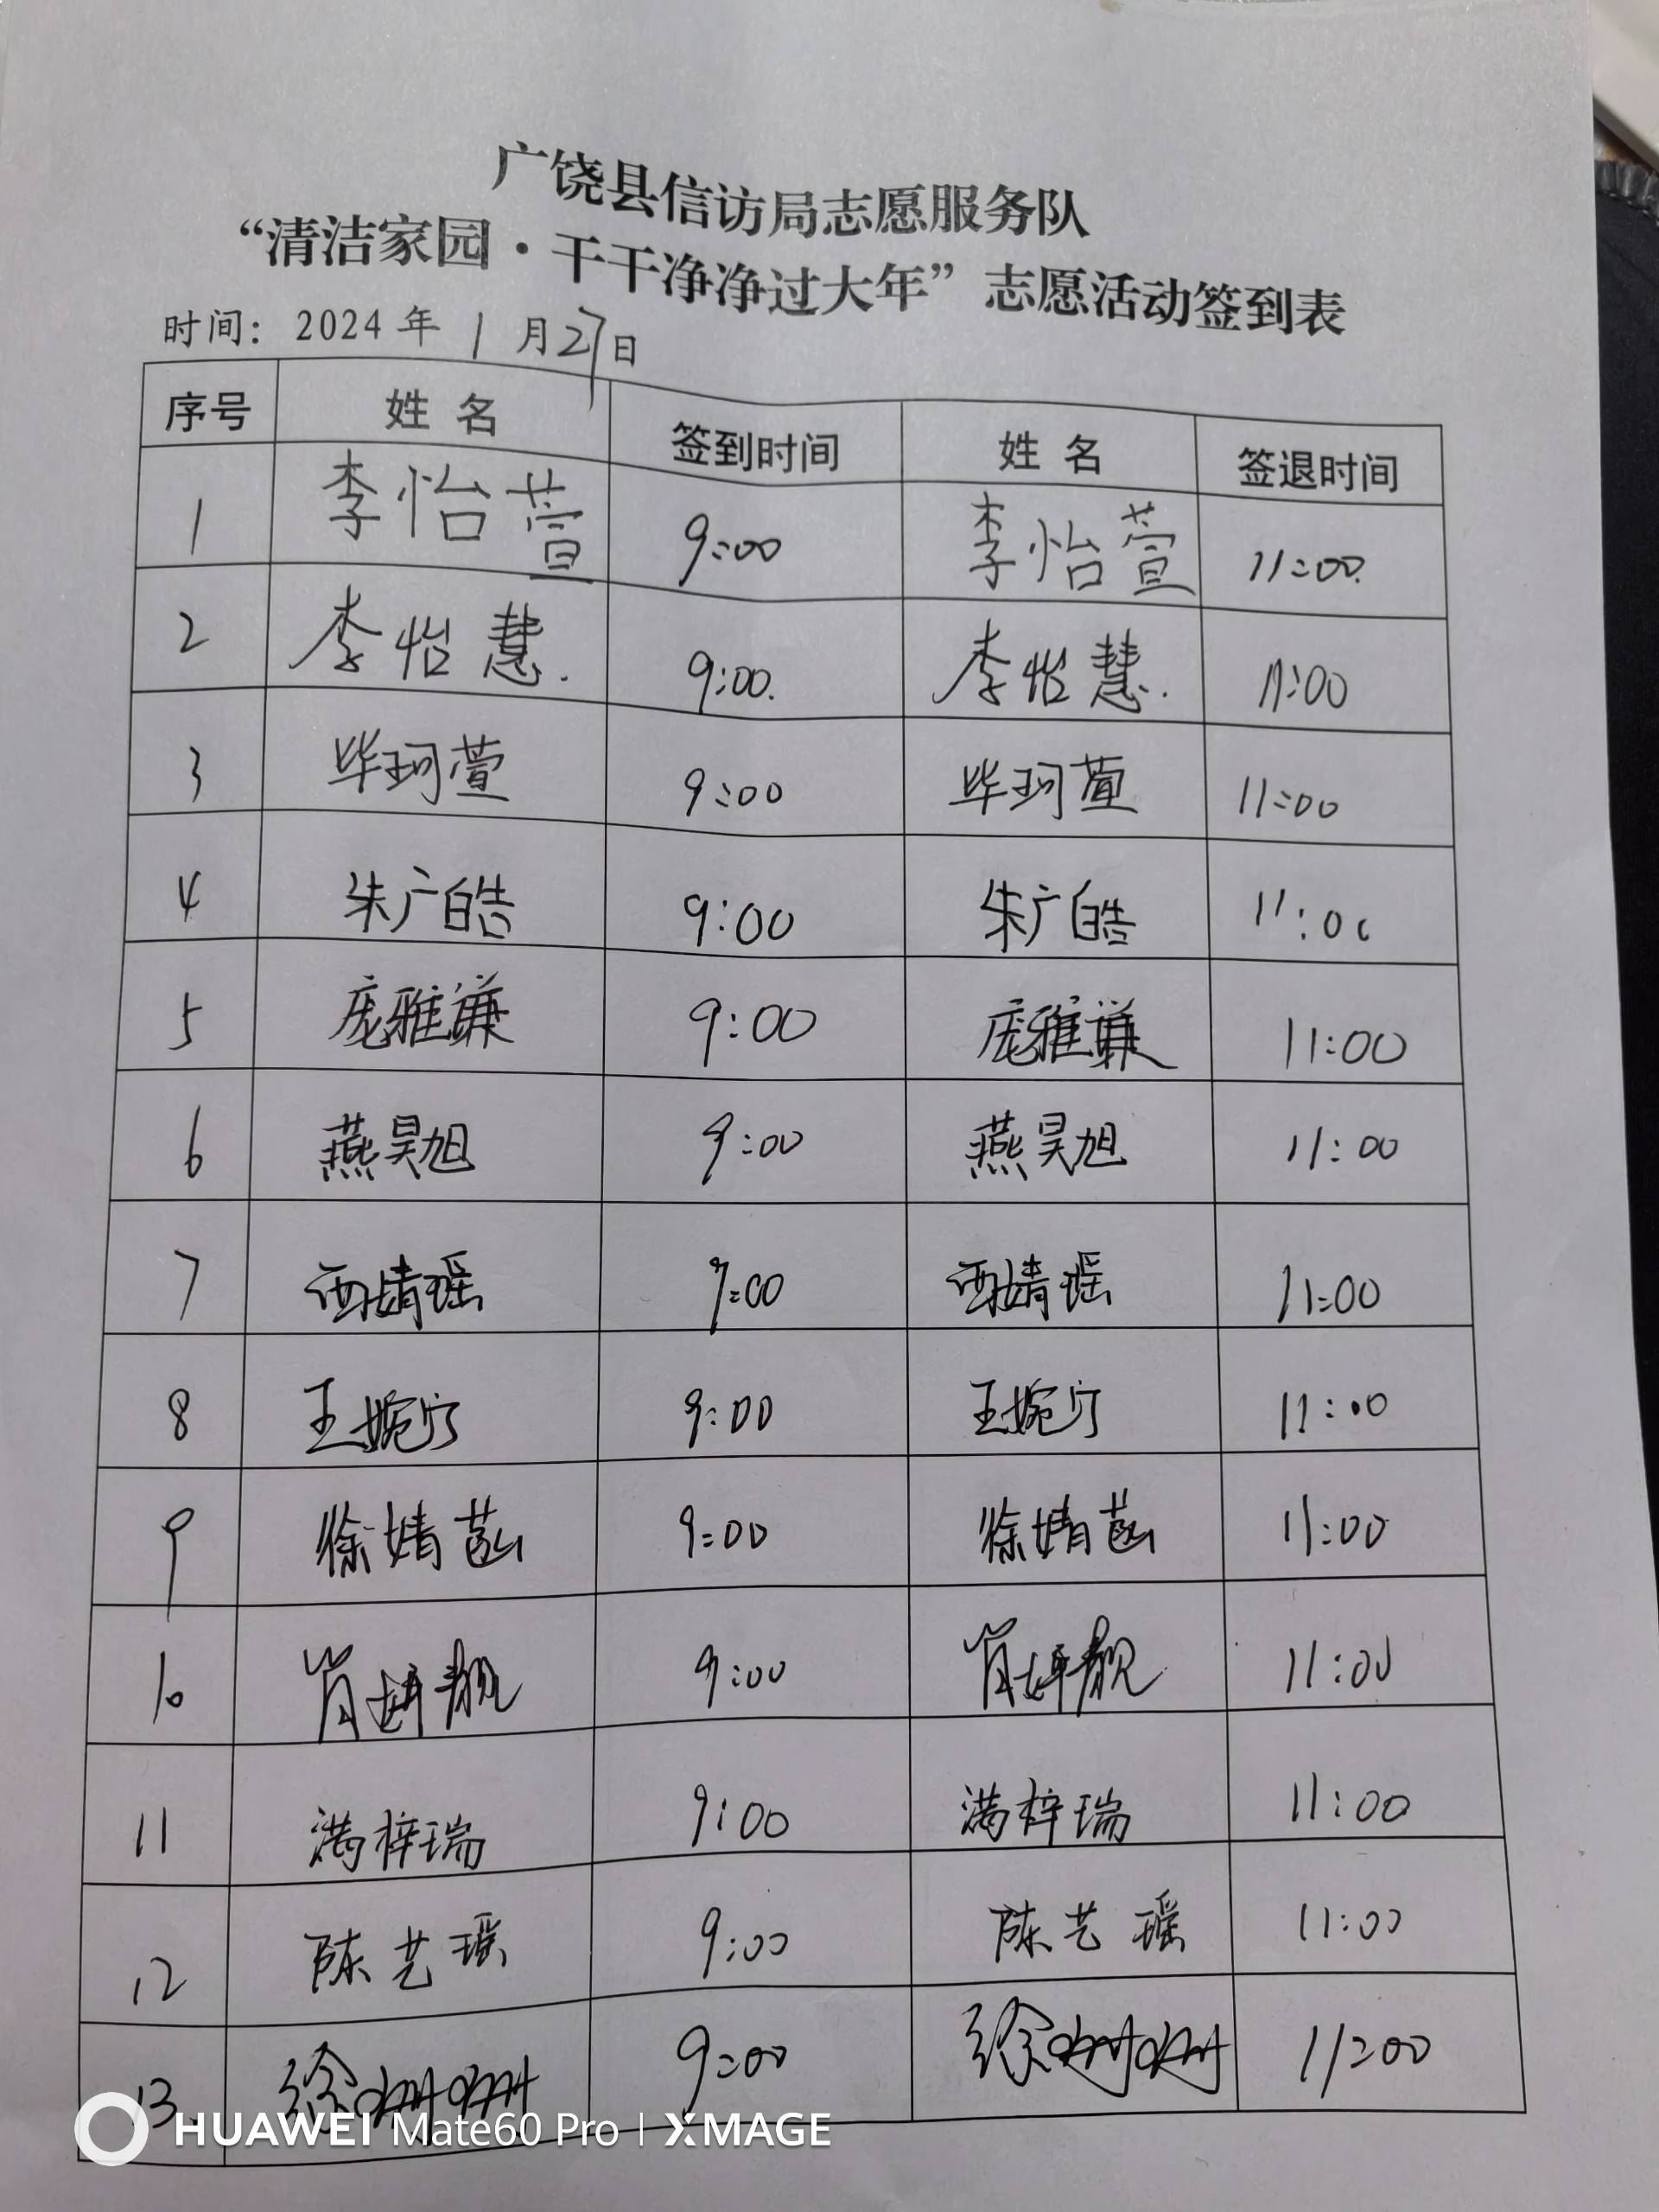 广饶县信访局志愿服务队
“清洁家园·干干净净过大年”志愿活动签到表
时间：2024 年 1 月27日
序号 姓 名 签到时间 姓 名 签退时间
1 李怡萱 9:00 李怡萱 11:00.
2 李怡慧. 9:00. 李怡慧. 11:00
3 毕珂萱 9:00 毕珂萱 11:00
4 朱广皓 9:00 朱广皓 11:00
5 庞雅谦 9:00 庞雅谦 11:00
6 燕昊旭 9:00 燕昊旭 11:00
7 西婧瑶 9:00 西婧瑶 11:00
8 王婉宁 9:00 王婉宁 11:00
9 徐婧菡 9:00 徐婧菡 11:00
10 肖妍靓 9:00 肖妍靓 11:00
11 满梓瑞 9:00 满梓瑞 11:00
12 陈艺瑶 9:00 陈艺瑶 11:00
13. 徐珊珊 9:00 徐珊珊 11:00
HUAWEI Mate60 Pro | XMAGE